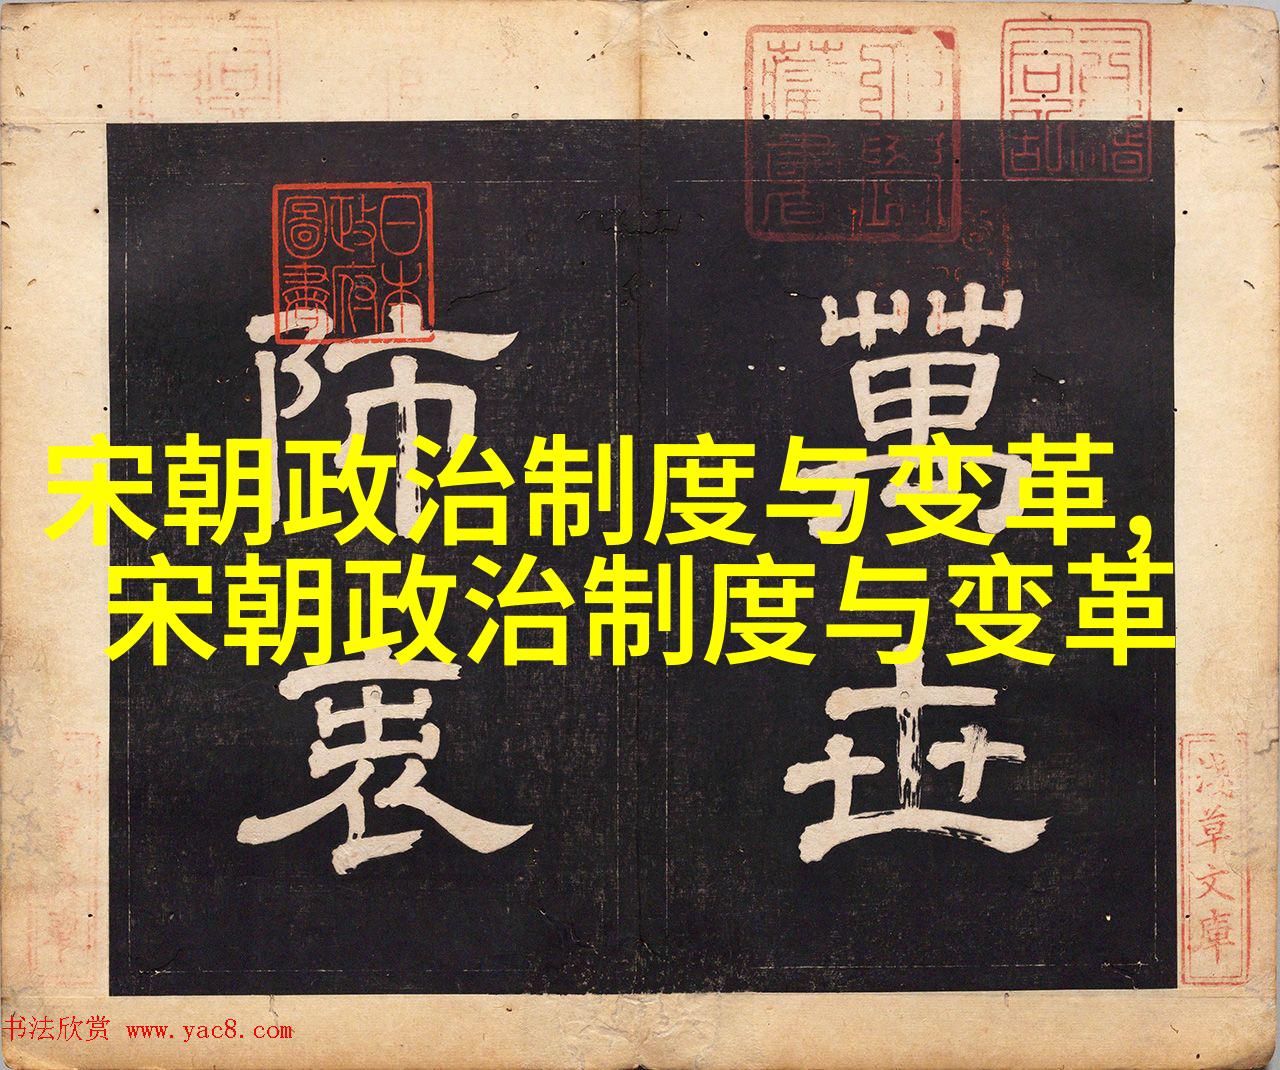 宋朝政治制度与变革,
宋朝政治制度与变革
萬世
師表
日本政府圖書
淺草文庫
书法欣赏 www.yac8.com